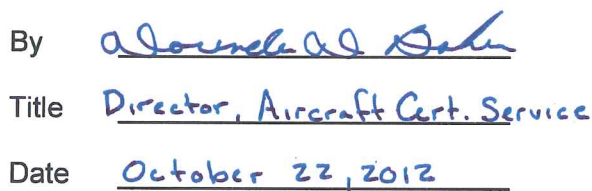 By
Title Director, Aircraft Cert. Service
Date October 22, 2012